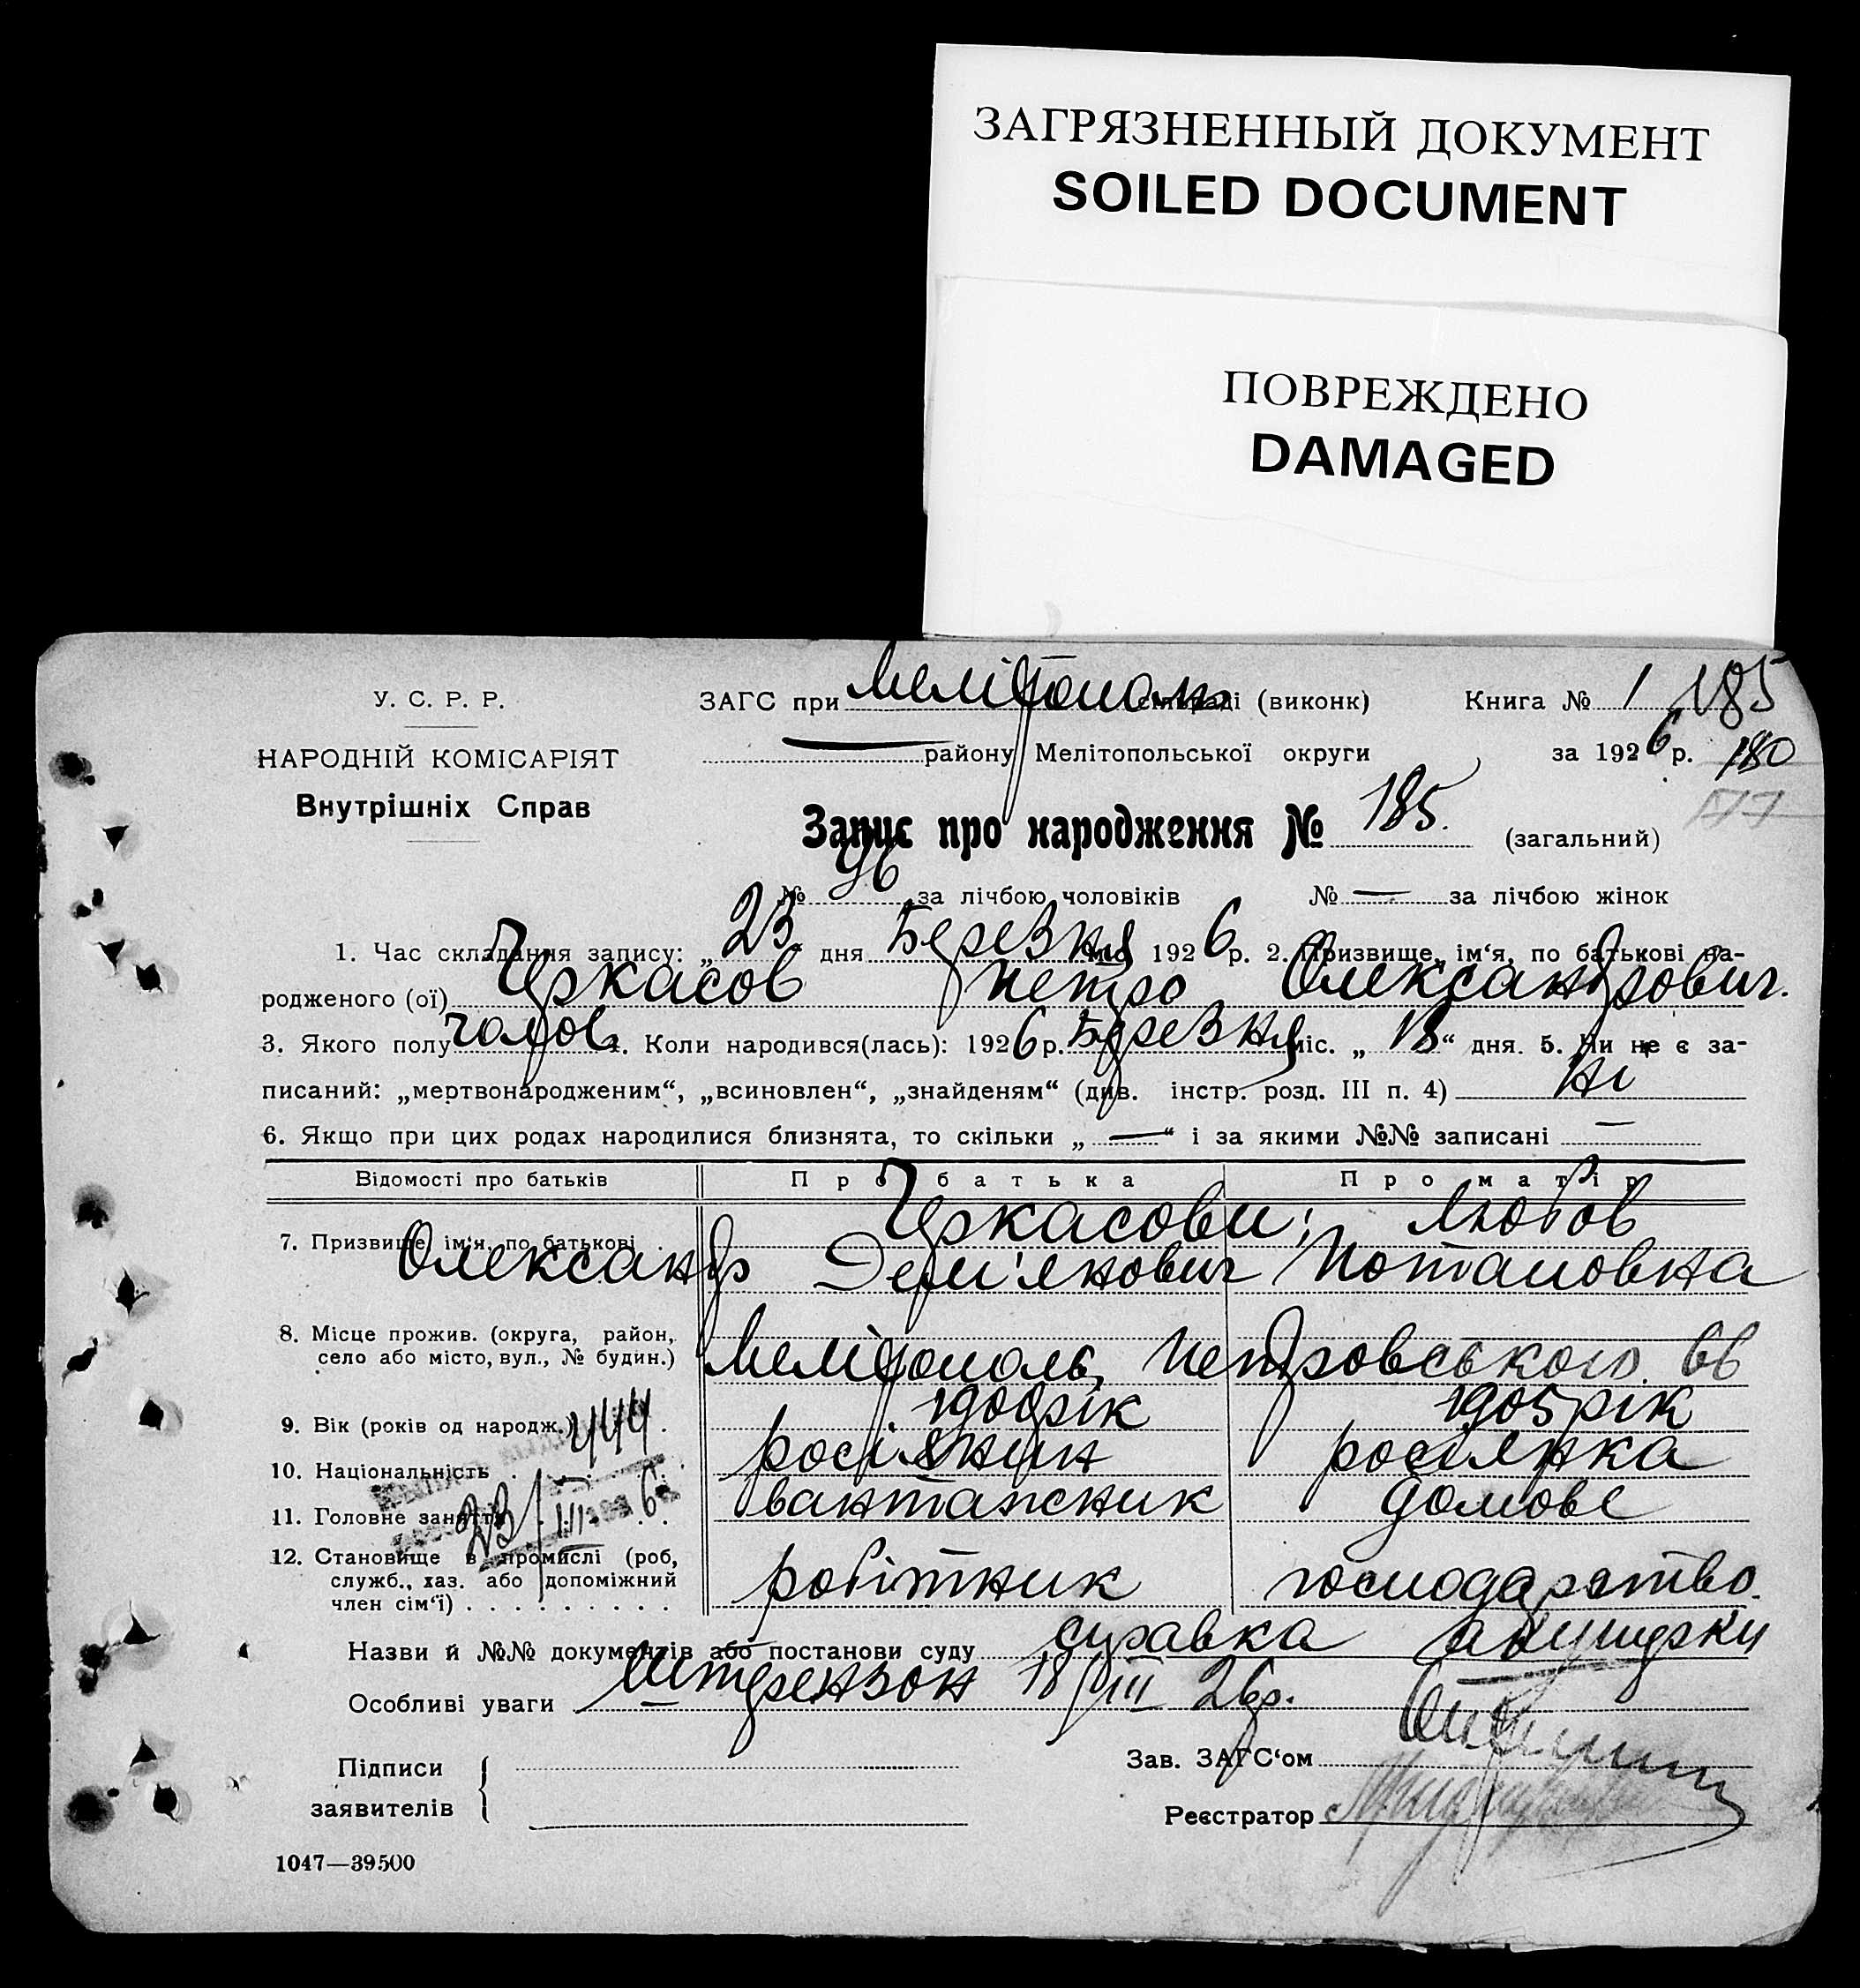 ЗАГРЯЗНЕННЫЙ ДОКУМЕНТ
SOILED DOCUMENT
ПОВРЕЖДЕНО
DAMAGED
У. С. Р. Р.
НАРОДНІЙ КОМІСАРІЯТ
Внутрішніх Справ
ЗАГС при Мелітополь сільраді (виконк) Книга № 1 185
— району Мелітопольської округи за 1926 р. 180
Запис про народження № 185. (загальний)
№ 96 за лічбою чоловіків № — за лічбою жінок
1. Час складання запису: „23“ дня Березня міс. 1926 р. 2. Призвище, ім‘я, по батькові на-
родженого (ої) Черкасов Петро Олександрович.
3. Якого полу чолов. 4. Коли народився(лась): 1926 р. Березня міс. „13“ дня. 5. Чи не є за-
писаний: „мертвонародженим“, „всиновлен“, „знайденям“ (див. інстр. розд. III п. 4) Ні
6. Якщо при цих родах народилися близнята, то скільки „—“ і за якими №№ записані —
Відомості про батьків Про батька Про матір
7. Призвище, ім‘я, по батькові Черкасови: Любов
Олександр Дем'янович Потаповна
8. Місце прожив. (округа, район,
село або місто, вул., № будин.) Мелітополь, Петровського. 66
9. Вік (років од народж.) 1900 рік 1905 рік
444
10. Національність росіянин росіянка
11. Головне заняття вантажник домове
23/III 6
12. Становище в промислі (роб,
служб., хаз. або допоміжний
член сім‘ї) робітник господарство.
Назви й №№ документів або постанови суду справка акушерки
Особливі уваги Штрензон 18/III 26р.
Підписи
заявителів
Зав. ЗАГС‘ом
Реєстратор
1047—39500